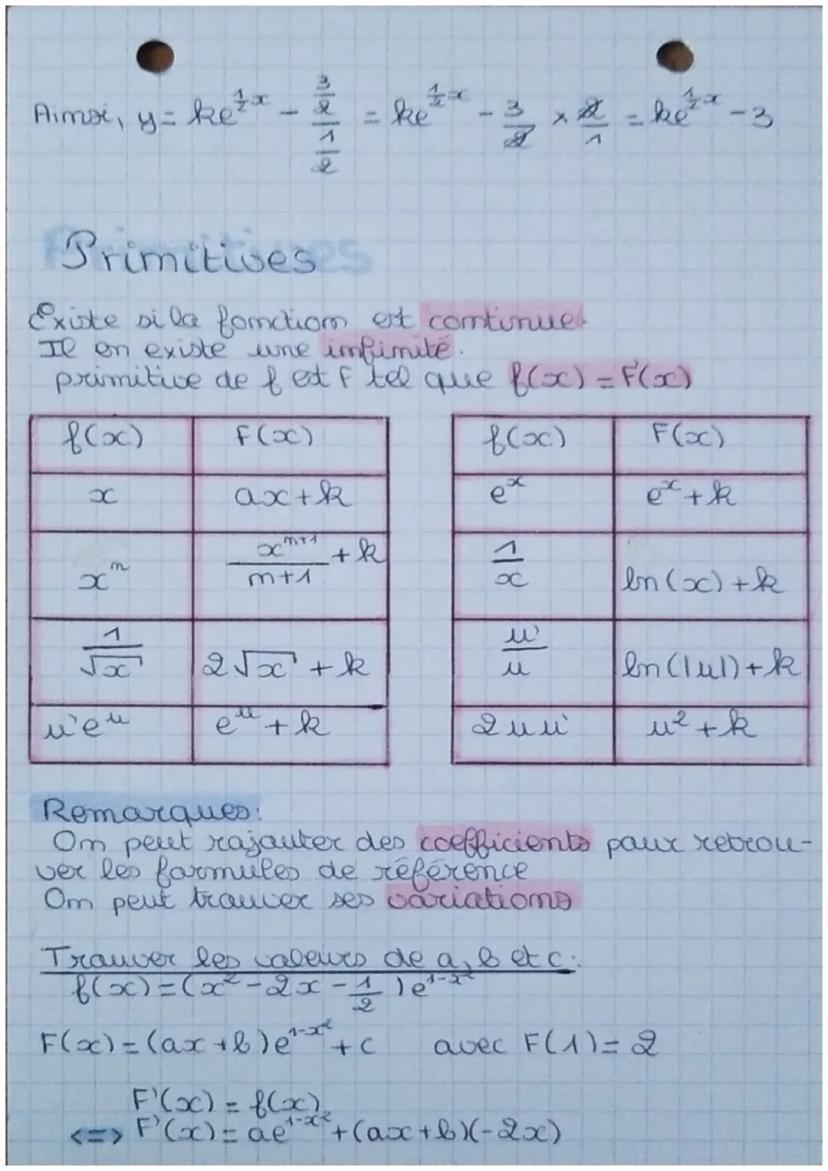 Ainsi, y = ke^{\frac{1}{2}x} - \frac{\frac{3}{2}}{\frac{1}{2}} = ke^{\frac{1}{2}x} - \frac{3}{2} × \frac{2}{1} = ke^{\frac{1}{2}x} - 3
Primitives
Existe si la fonction est continue.
Il en existe une infinité.
primitive de f est F tel que f(x) = F'(x)
f(x) F(x)
x ax + k
x^n \frac{x^{n+1}}{n+1} + k
\frac{1}{\sqrt{x}} 2\sqrt{x} + k
u'e^u e^u + k
f(x) F(x)
e^x e^x + k
\frac{1}{x} ln(x) + k
\frac{u'}{u} ln(|u|) + k
2uu' u² + k
Remarques:
On peut rajouter des coefficients pour retrou-
ver les formules de référence
On peut trouver ses variations
Trouver les valeurs de a, b et c:
f(x) = (x² - 2x - \frac{1}{2})e^{1-x²}
F(x) = (ax + b)e^{1-x²} + c avec F(1) = 2
F'(x) = f(x)
<=> F'(x) = ae^{1-x²} + (ax + b)(-2x)